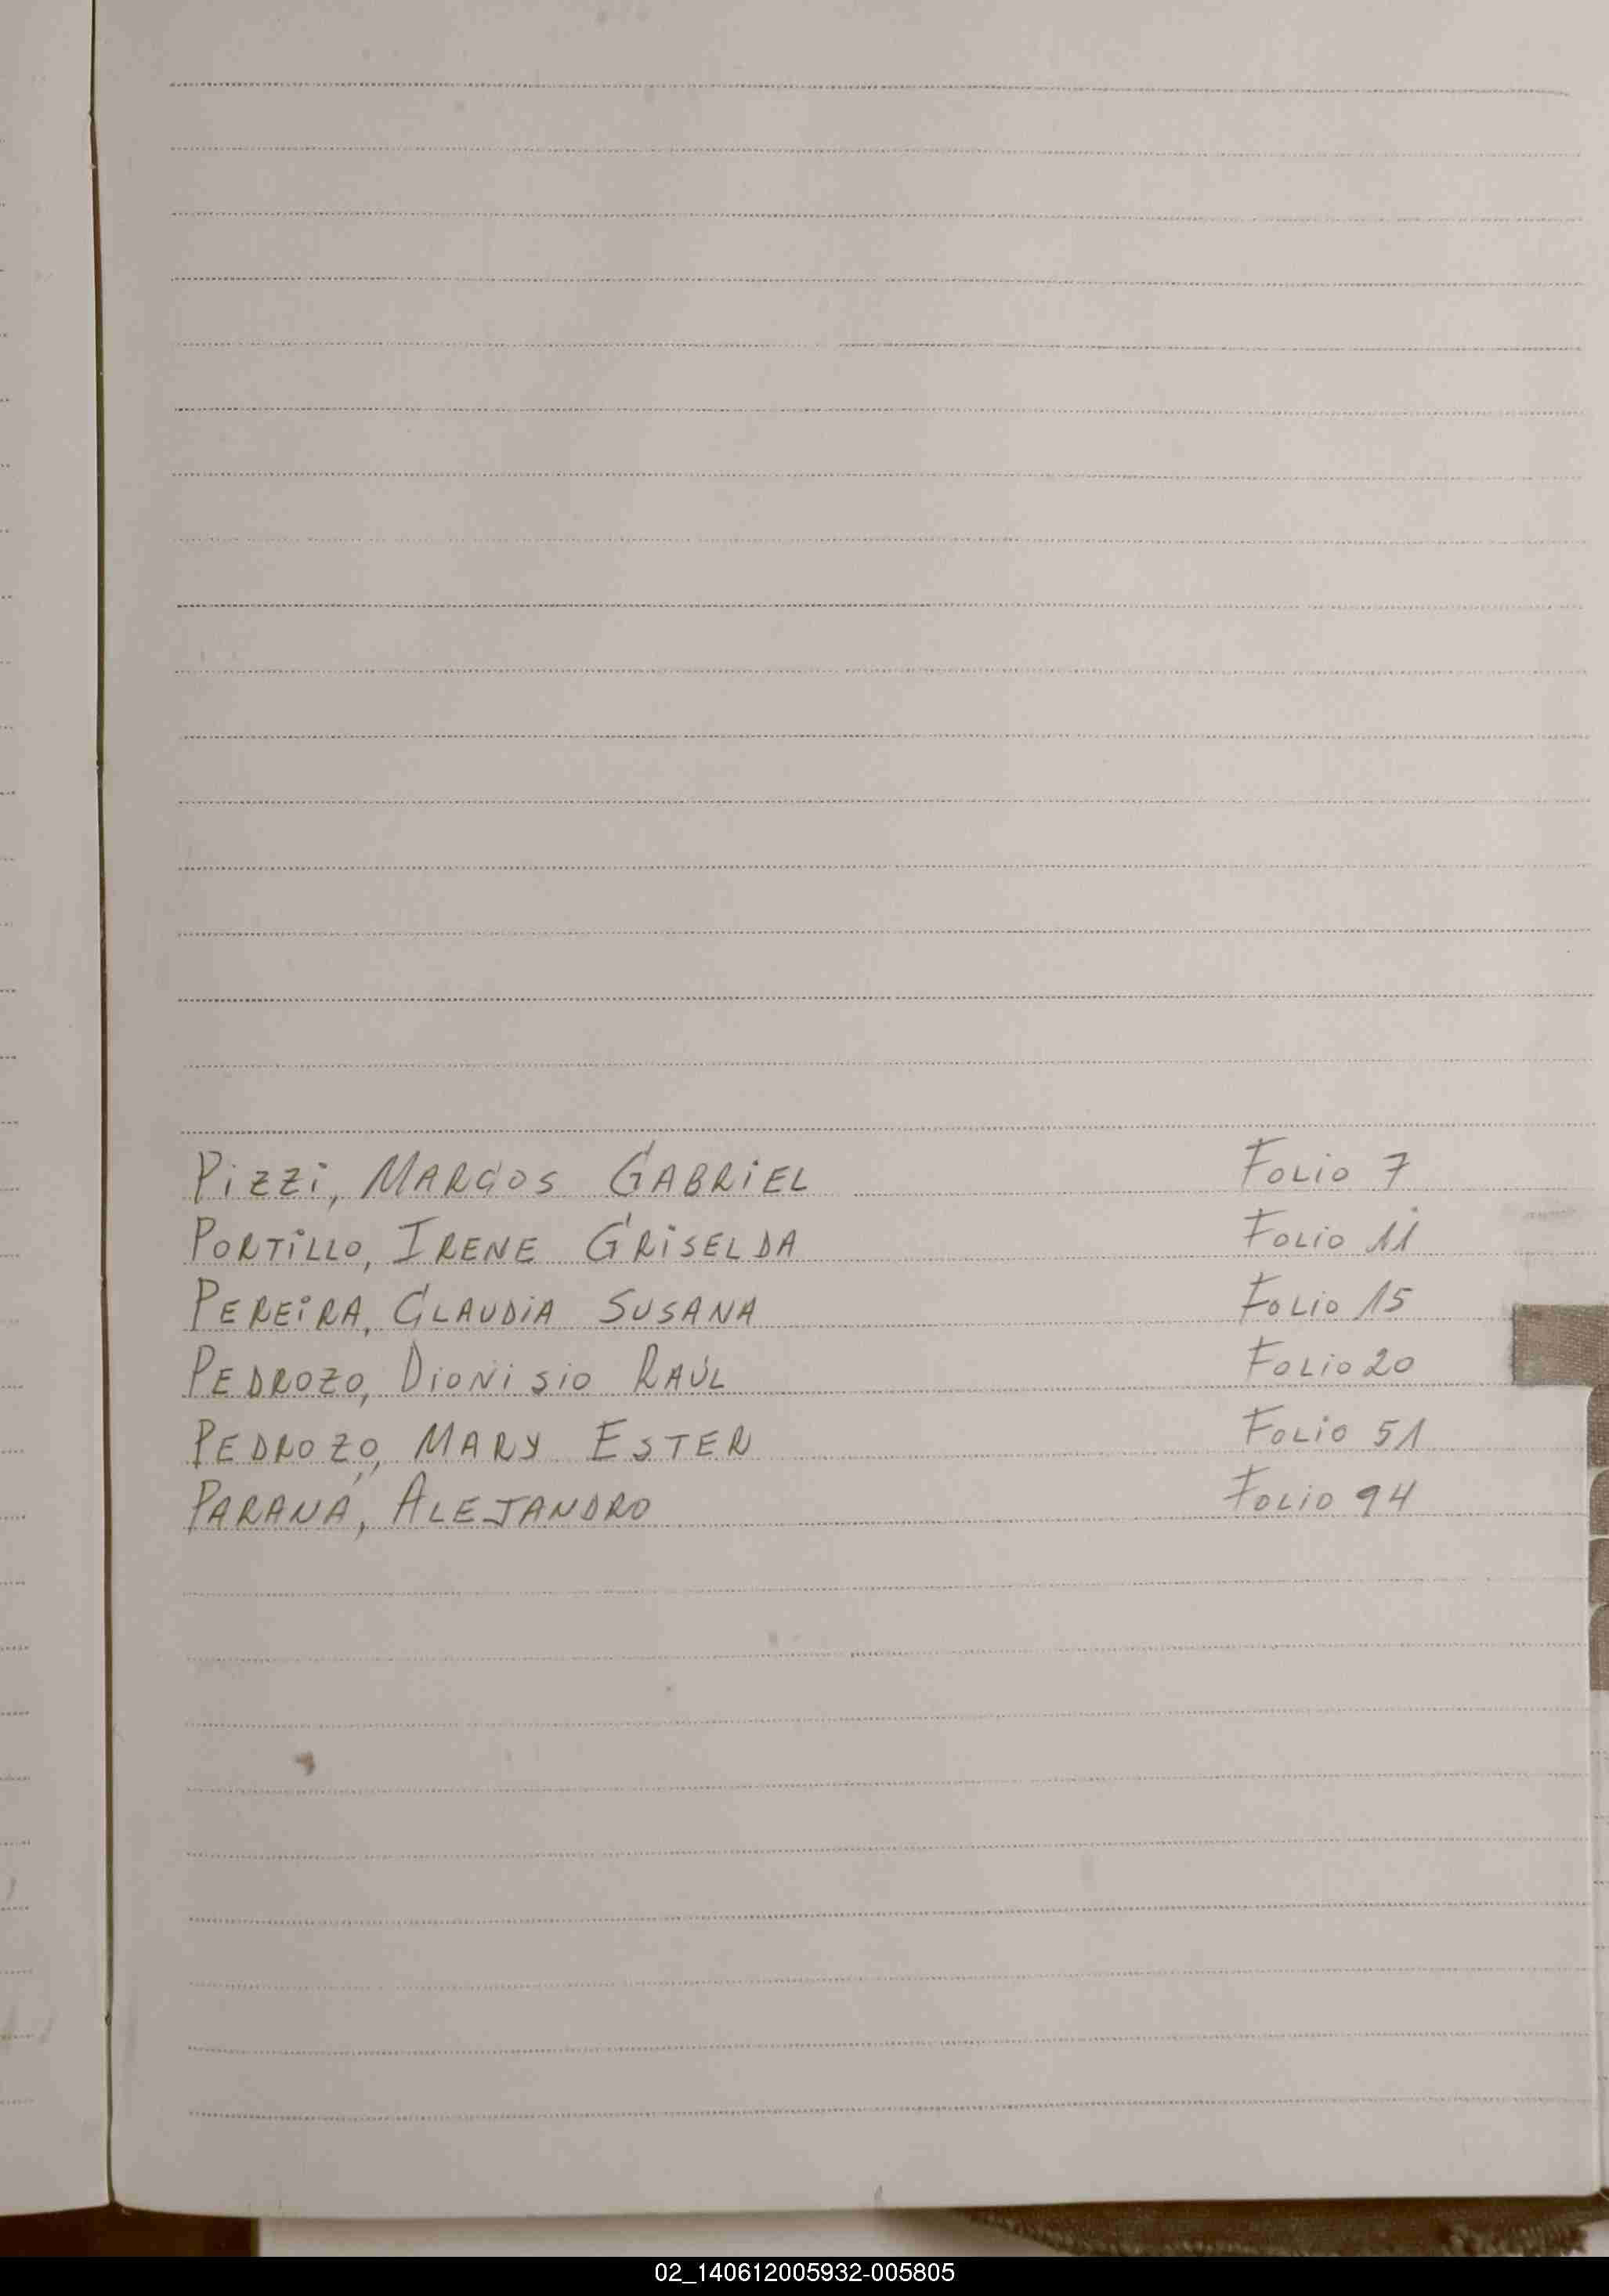 Pizzi, MARCOS GABRIEL Folio 7
PORTILLO, IRENE GRISELDA Folio 11
PEREIRA, CLAUDIA SUSANA Folio 15
PEDROZO, DIONISIO RAÚL Folio 20
PEDROZO, MARY ESTER Folio 51
PARANÁ, ALEJANDRO Folio 94
02_140612005932-005805